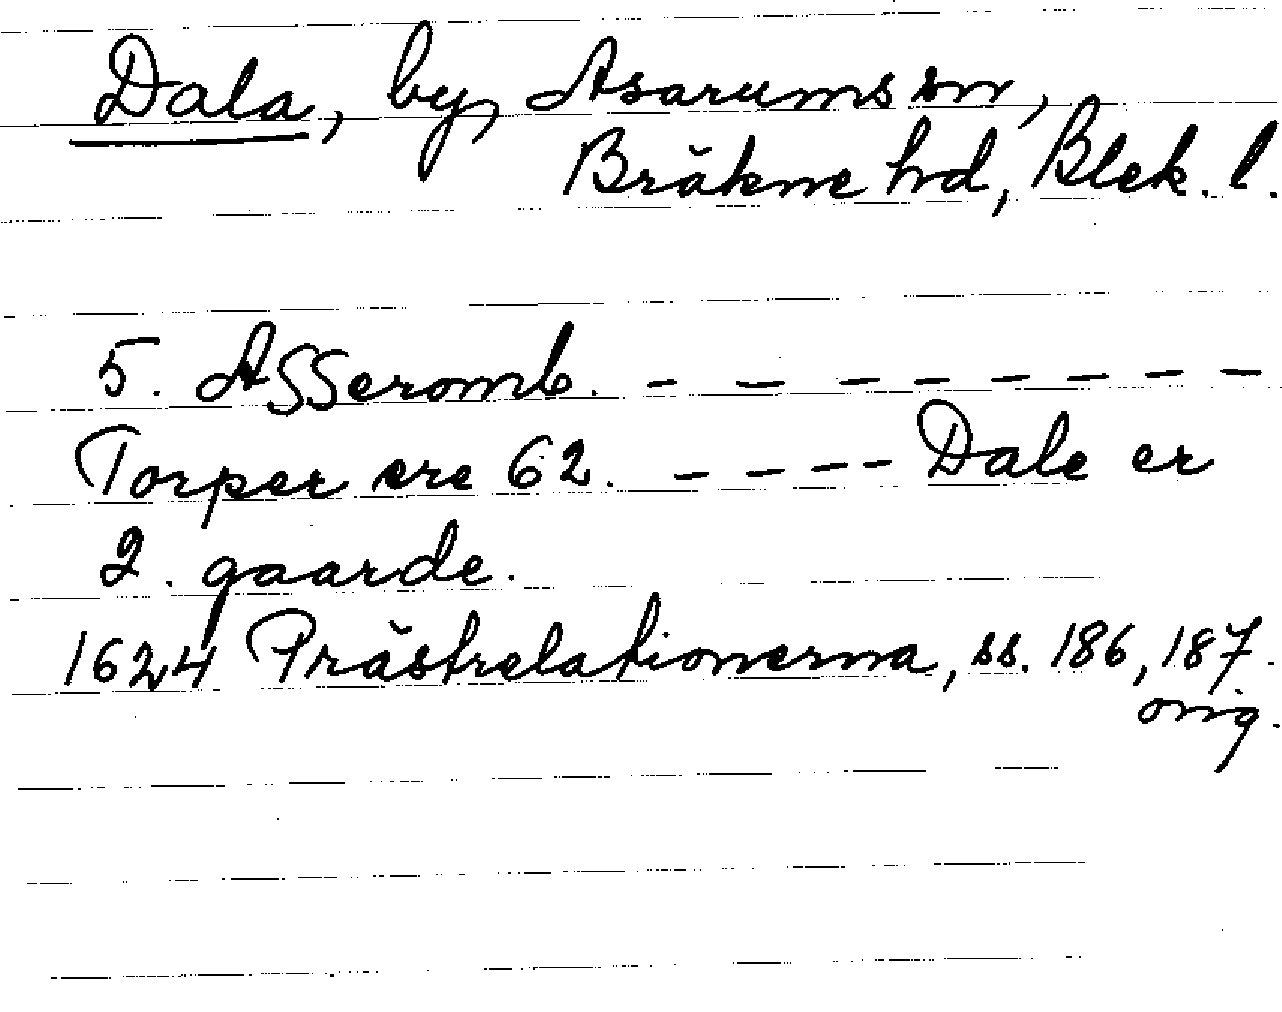 Dala, by, Asarums sn,
Bräkne hd, Blek. l.
5. Asseromb. - - - - - - - -
Torper ere 62. - - - - Dale er
2. gaarde.
1624 Prästrelationerna, ss. 186, 187.
orig.